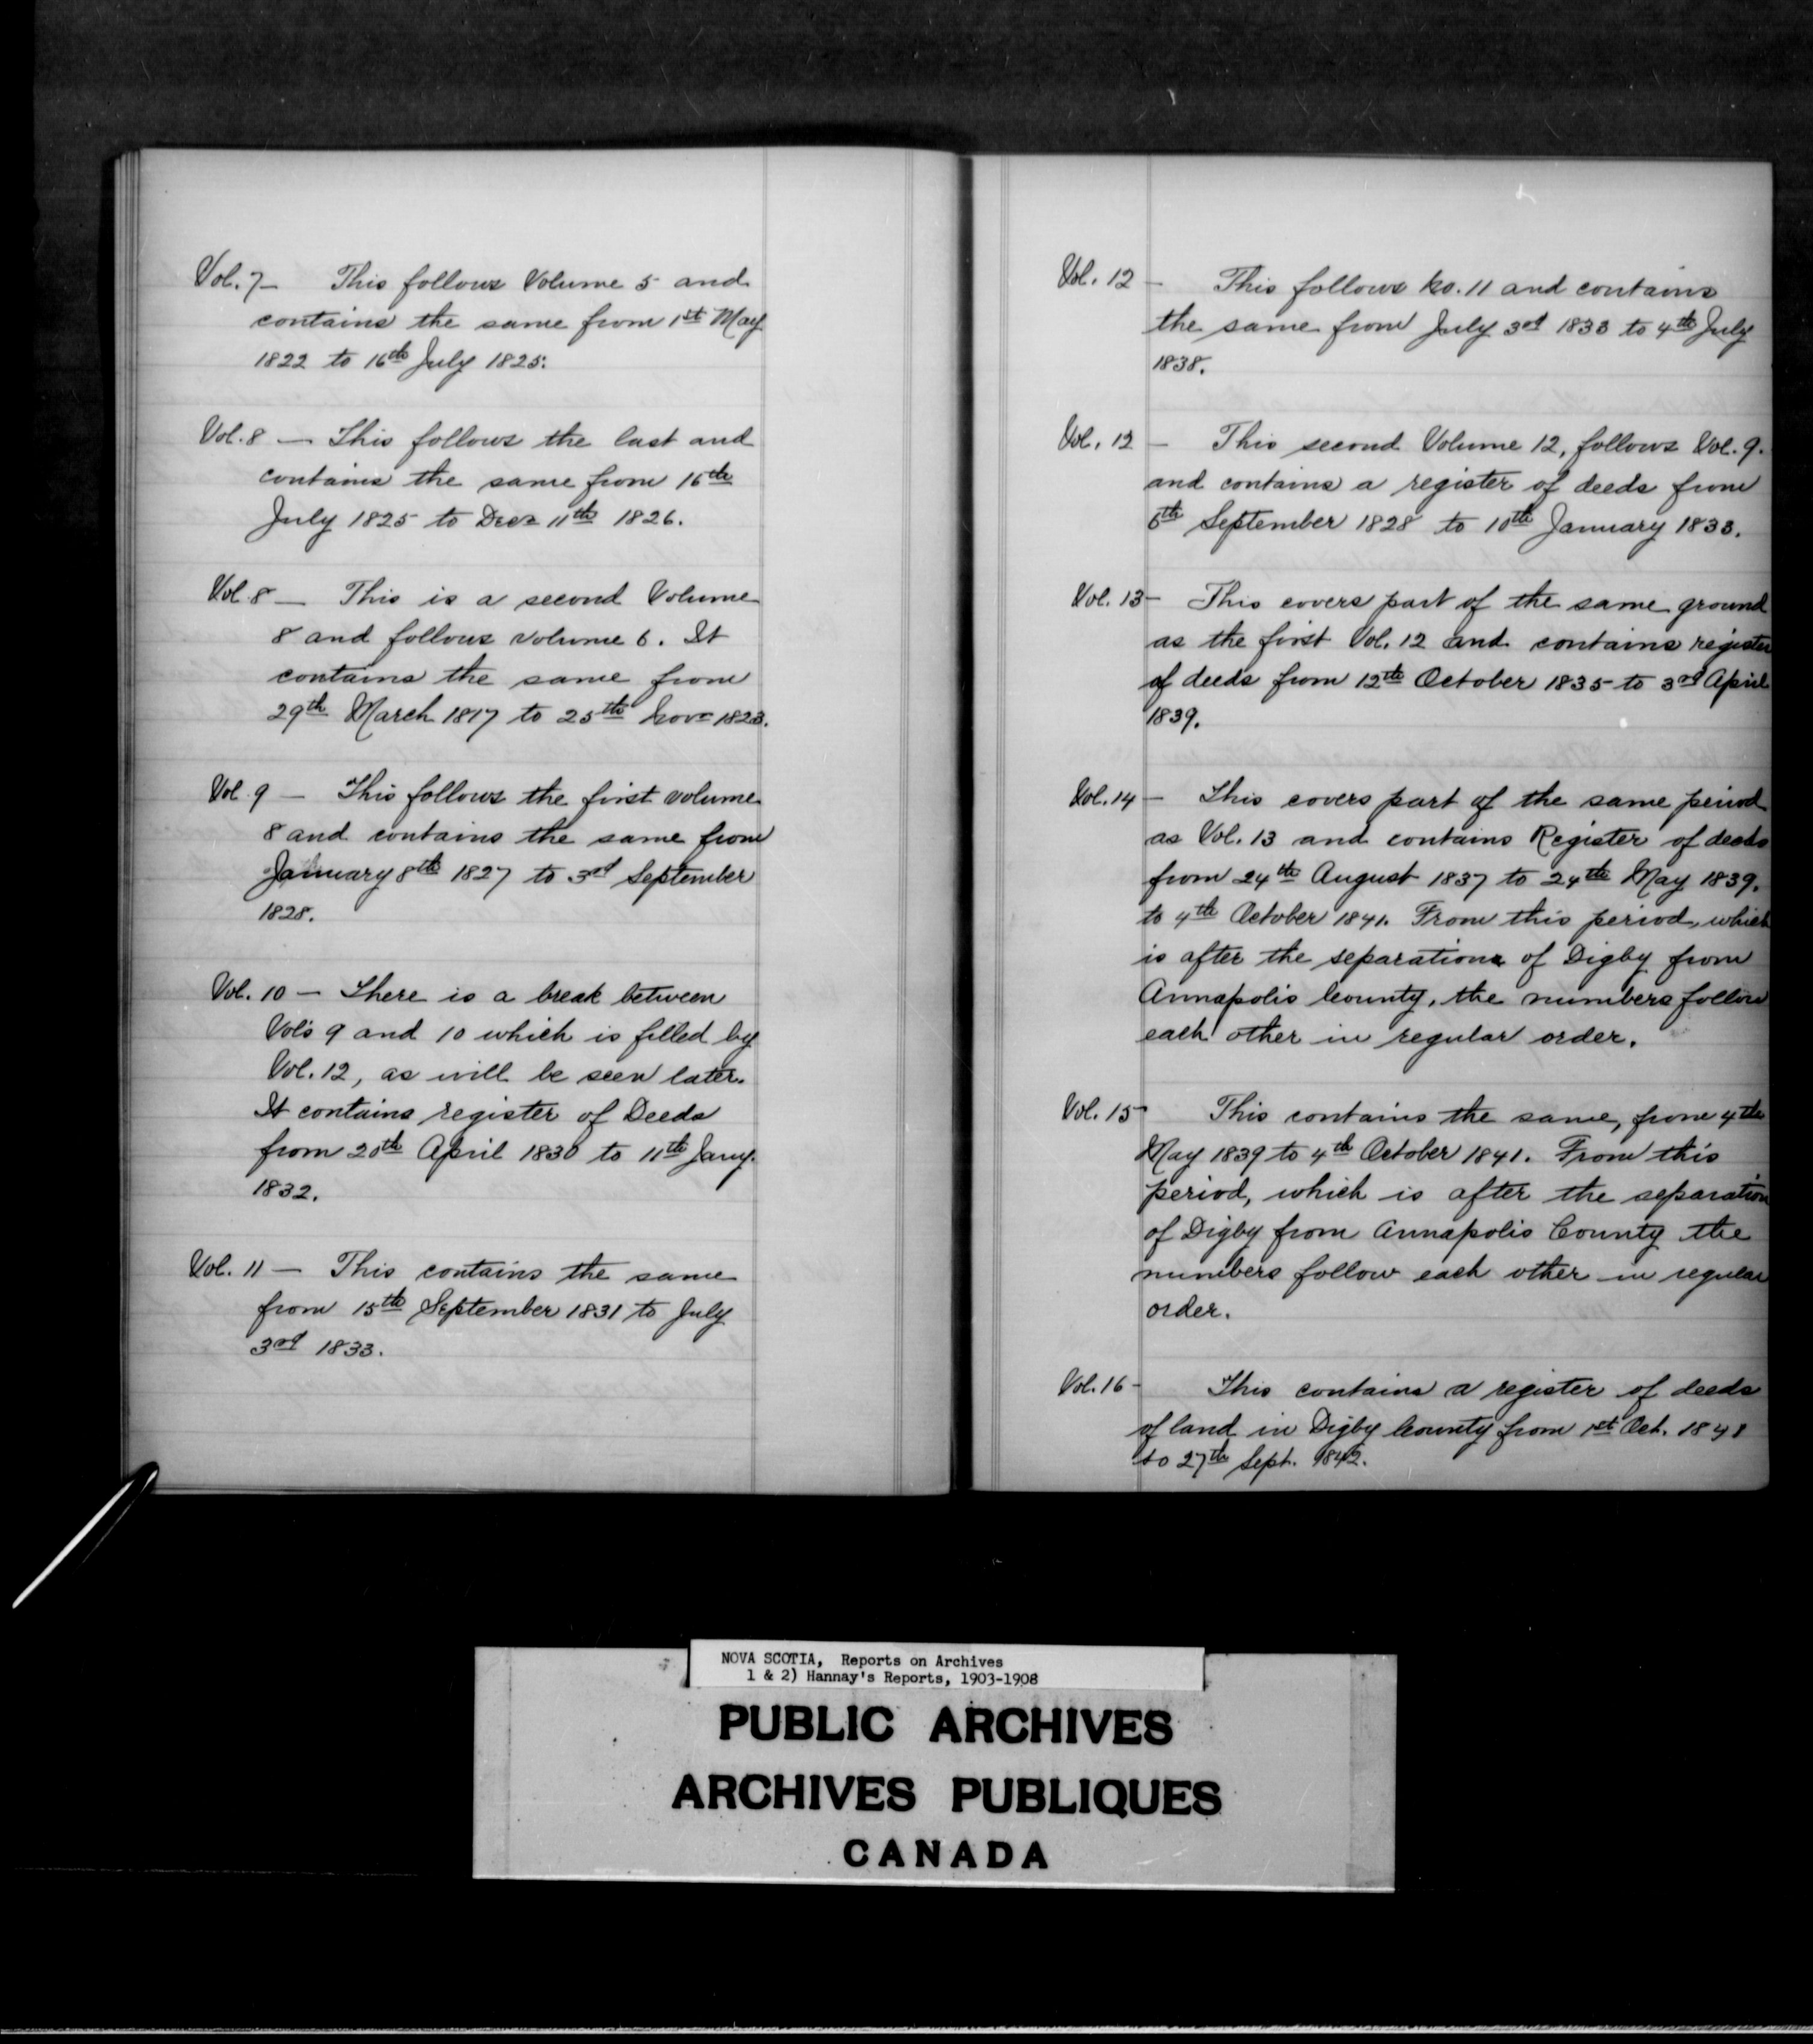 Vol. 7 — This follows Volume 5 and
contains the same from 1st May
1822 to 16th July 1825.
Vol. 8 — This follows the last and
contains the same from 16th
July 1825 to Decr 11th 1826.
Vol 8 — This is a second Volume
8 and follows volume 6. It
contains the same from
29th March 1817 to 25th Novr 1823.
Vol 9 — This follows the first volume
8 and contains the same from
January 8th 1827 to 3rd September
1828.
Vol. 10 — There is a break between
Vols 9 and 10 which is filled by
Vol. 12, as will be seen later.
It contains register of Deeds
from 20th April 1830 to 11th Jany.
1832.
Vol. 11 — This contains the same
from 15th September 1831 to July
3rd 1833.
Vol. 12 — This follows No. 11 and contains
the same from July 3rd 1833 to 4th July
1838.
Vol. 12 — This second Volume 12, follows Vol. 9.
and contains a register of deeds from
6th September 1828 to 10th January 1833.
Vol. 13 — This covers part of the same ground
as the first Vol. 12 and contains register
of deeds from 12th October 1835 to 3rd April
1839.
Vol. 14 — This covers part of the same period
as Vol. 13 and contains Register of deeds
from 24th August 1837 to 24th May 1839.
to 4th October 1841. From this period, which
is after the separation of Digby from
Annapolis County, the numbers follow
each other in regular order.
Vol. 15 — This contains the same, from 4th
May 1839 to 4th October 1841. From this
period, which is after the separation
of Digby from Annapolis County the
numbers follow each other in regular
order.
Vol. 16 — This contains a register of deeds
of land in Digby County from 1st Oct. 1841
to 27th Sept. 1842.
NOVA SCOTIA, Reports on Archives
1 & 2) Hannay's Reports, 1903-1908
PUBLIC ARCHIVES
ARCHIVES PUBLIQUES
CANADA